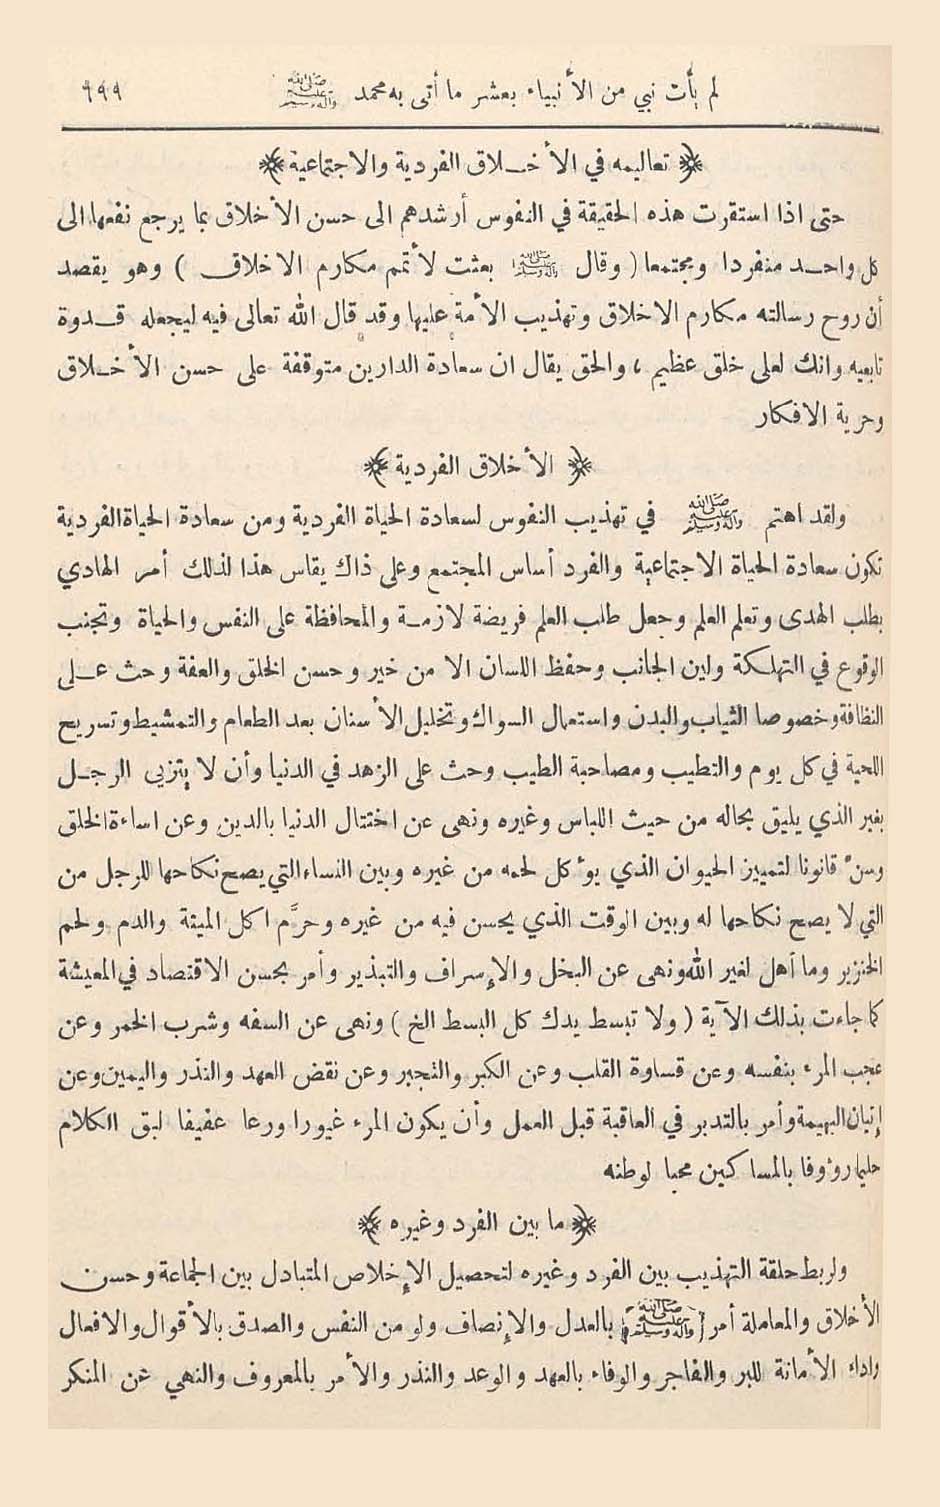 لم يأت نبي من الأنبياء بعشر ما أتى به محمد ﷺ ٩٩٩
﴿ تعاليمه في الأخـلاق الفردية والاجتماعية ﴾
حتى اذا استقرت هذه الحقيقة في النفوس أرشدهم الى حسن الأخلاق بما يرجع نفعها الى
كل واحـد منفردا ومجتمعا ( وقال ﷺ بعثت لأتمم مكارم الاخلاق ) وهو يقصد
أن روح رسالته مكارم الاخلاق وتهذيب الأمة عليها وقد قال الله تعالى فيه ليجعله قـدوة
تابعيه وانك لعلى خلق عظيم ، والحق يقال ان سعادة الدارين متوقفة على حسن الأخـلاق
وحرية الافكار
﴿ الأخلاق الفردية ﴾
ولقد اهتم ﷺ في تهذيب النفوس لسعادة الحياة الفردية ومن سعادة الحياة الفردية
تكون سعادة الحياة الاجتماعية والفرد أساس المجتمع وعلى ذاك يقاس هذا لذلك أمر الهادي
بطلب الهدى وتعلم العلم وجعل طلب العلم فريضة لازمـة والمحافظة على النفس والحياة وتجنب
الوقوع في التهلكة ولين الجانب وحفظ اللسان الا من خير وحسن الخلق والعفة وحث عـلى
النظافة وخصوصا الثياب والبدن واستعمال السواك وتخليل الأسنان بعد الطعام والتمشيط وتسريح
اللحية في كل يوم والتطيب ومصاحبة الطيب وحث على الزهد في الدنيا وأن لا يتزيى الرجـل
بغير الذي يليق بحاله من حيث اللباس وغيره ونهى عن اختتال الدنيا بالدين وعن اساءة الخلق
وسنّ قانونا لتمييز الحيوان الذي يؤكل لحمه من غيره وبين النساء التي يصح نكاحها للرجل من
التي لا يصح نكاحها له وبين الوقت الذي يحسن فيه من غيره وحرَّم اكل الميتة والدم ولحم
الخنزير وما أهل لغير الله ونهى عن البخل والإسراف والتبذير وأمر بحسن الاقتصاد في المعيشة
كما جاءت بذلك الآية ( ولا تبسط يدك كل البسط الخ ) ونهى عن السفه وشرب الخمر وعن
عجب المرء بنفسه وعن قساوة القلب وعن الكبر والتجبر وعن نقض العهد والنذر واليمين وعن
إتيان البهيمة وأمر بالتدبر في العاقبة قبل العمل وأن يكون المرء غيورا ورعا عفيفا لبق الكلام
حليما رؤوفا بالمساكين محبا لوطنه
﴿ ما بين الفرد وغيره ﴾
ولربط حلقة التهذيب بين الفرد وغيره لتحصيل الإخلاص المتبادل بين الجماعة وحسن
الأخلاق والمعاملة أمر ﷺ بالعدل والإنصاف ولو من النفس والصدق بالأقوال والافعال
واداء الأمانة للبر والفاجر والوفاء بالعهد والوعد والنذر والأمر بالمعروف والنهي عن المنكر